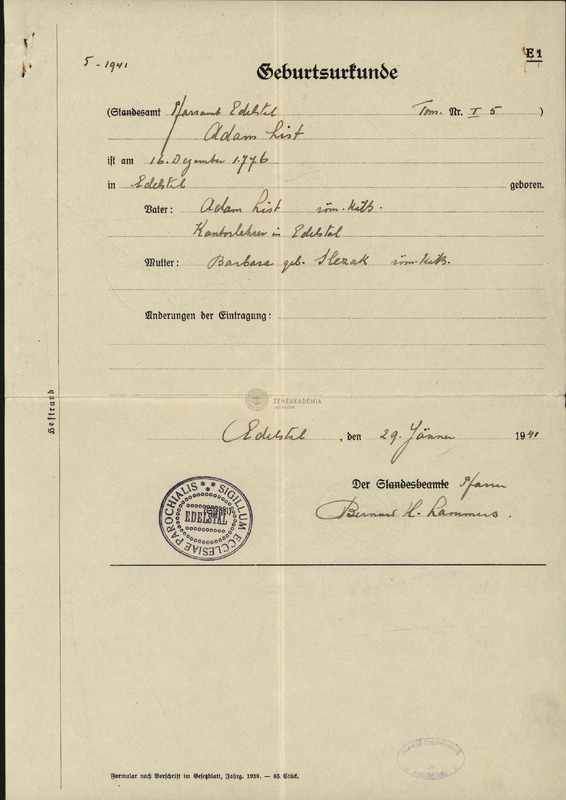 5 - 1941
E1
Geburtsurkunde
(Standesamt Pfarramt Edelstal Tom. Nr. I 5 )
Adam List
ist am 16. Dezember 1776
in Edelstal geboren.
Vater: Adam List röm. kath.
Kantorlehrer in Edelstal
Mutter: Barbara geb. Slezak röm. kath.
Änderungen der Eintragung:
Heftrand
ZENEAKADÉMIA
Edelstal, den 29. Jänner 1941
Der Standesbeamte Pfarrer
Bernard H. Lammers.
SIGILLUM ECCLESIAE PAROCHIALIS
EDELSTAL
Formular nach Vorschrift im Gesetzblatt, Jahrg. 1938. — 85. Stück.